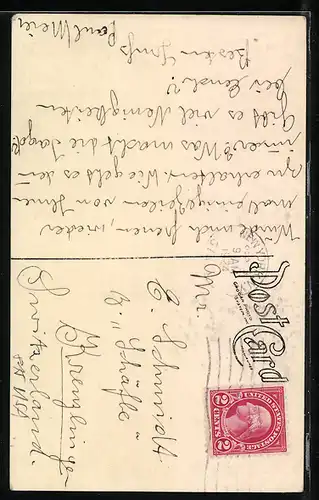 Würde mich freuen, wieder
mal einige Zeilen von Ihnen
zu erhalten. Wie geht es den
immer? Was macht die Jagd?
Gibt es viel Neuigkeiten
bei Eench?
Besten Gruss
Paul Meier
POST CARD
UNITED STATES POSTAGE
2 CENTS 2
Mr.
E. Schmidt
z. " Schäfle "
Kreuzlingen
Switzerland.